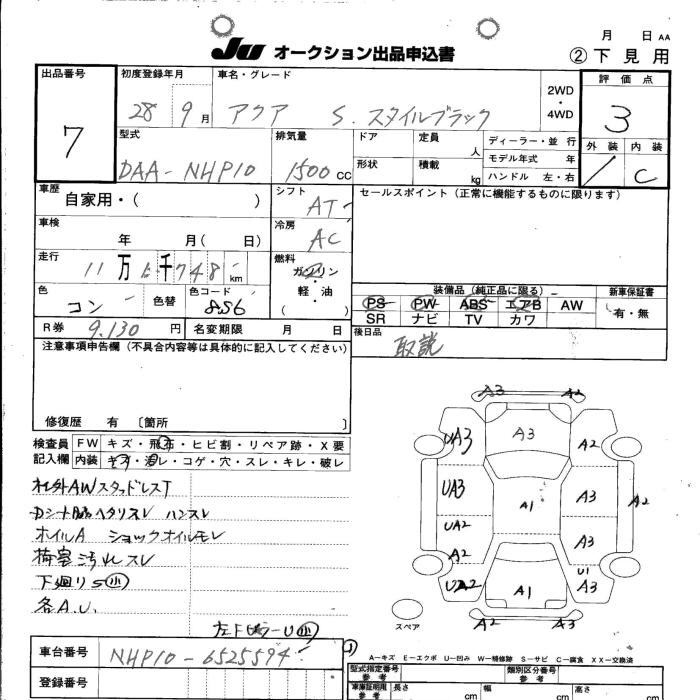 月 日 AA
JU オークション出品申込書
② 下見用
出品番号
7
初度登録年月
28 9月
車名・グレード
アクア S. スタイルブラック
2WD
・
4WD
評価点
3
外装 内装
/ C
型式
DAA-NHP10
排気量
1500 cc
ドア
形状
定員
人
積載
kg
ディーラー・並行
モデル年式 年
ハンドル 左・右
車歴
自家用・( )
シフト
AT
セールスポイント (正常に機能するものに限ります)
車検
年 月( 日)
冷房
AC
走行
11万 千748 km
燃料
ガソリン
・
軽・油
( )
色
コン
色替
色コード
8S6
装備品 (純正品に限る)
PS PW ABS エアB AW
SR ナビ TV カワ
新車保証書
有・無
R券 9.130 円
名変期限 月 日
後日品
取説
注意事項申告欄 (不具合内容等は具体的に記入してください)
修復歴 有 〔箇所 〕
検査員
記入欄
FW キズ・飛石・ヒビ割・リペア跡・X要
内装 キズ・汚レ・コゲ・穴・スレ・キレ・破レ
社外AWスタッドレスT
Dシート ヘタリスレ ハンスレ
ホイルA ショックオイルモレ
荷室汚れスレ
下廻りS小
各A.U.
A3 A2
UA3 A3 A2
UA3 A1 A3 A2
UA2 A3
A2 U1
UA2 A1 A3
A2 A3
スペア
A−キズ E−エクボ U−凹み W−補修跡 S−サビ C−腐食 XX−交換済
車台番号
NHP10-6525594
登録番号
型式指定番号
参考
類別区分番号
参考
車庫証明用
参考
長さ cm
幅 cm
高さ cm